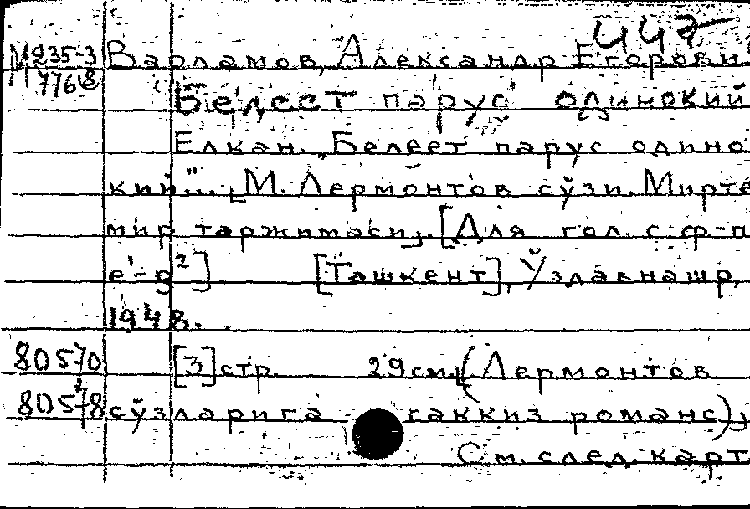 447
М235-3 Варламов, Александр Егорови
7768 Белеет парус одинокий
Елкан. „Белеет парус одино
кий"... [М. Лермонтов сўзи. Мирте
мир таржимаси]. [Для гол. с ф-п
e¹-g²] [Ташкент], Ўздавнашр,
1948.
80570 [3] стр. 29 см. (Лермонтов
80578 сўзларига саккиз романс),
См. след. карт